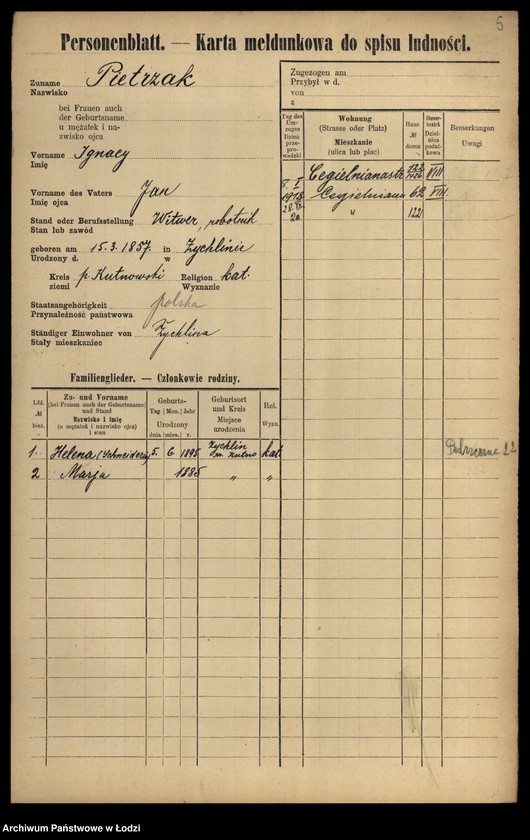 6
Personenblatt. — Karta meldunkowa do spisu ludności.
Zuname Pietrzak
Nazwisko
bei Frauen auch
der Geburtsname
u mężatek i na-
zwisko ojca
Vorname Ignacy
Imię
Vorname des Vaters Jan
Imię ojca
Stand oder Berufsstellung Witwer, robotnik
Stan lub zawód
geboren am 15.3.1857 in Żychlinie
Urodzony d. w
Kreis p. Kutnowski Religion kat.
ziemi Wyznanie
Staatsangehörigkeit polska
Przynależność państwowa
Ständiger Einwohner von Żychlina
Stały mieszkaniec
Zugezogen am
Przybył w d.
von
z
Tag des Um-zuges Dzień prze-pro-wadzki
Wohnung (Strasse oder Platz) Mieszkanie (ulica lub plac)
Haus № domu
Steuer-bezirk Dziel-nica podat-kowa
Bemerkungen Uwagi
Cegielnianastr 122 VIII
8. I 1918 Cegielniana 62 VIII
20. " 122
Familienglieder. — Członkowie rodziny.
Lfd. № bież.
Zu- und Vorname (bei Frauen auch der Geburtsname) und Stand Nazwisko i imię (u mężatek i nazwisko ojca) i stan
Geburts- Tag Mon. Jahr Urodzony dnia mies. r.
Geburtsort und Kreis Miejsce urodzenia
Rel. Wyzn.
1. Helena (Schneiderin) 5. 6 1895 Żychlin pow. Kutno kat.
2 Marja 1885 " "
Archiwum Państwowe w Łodzi